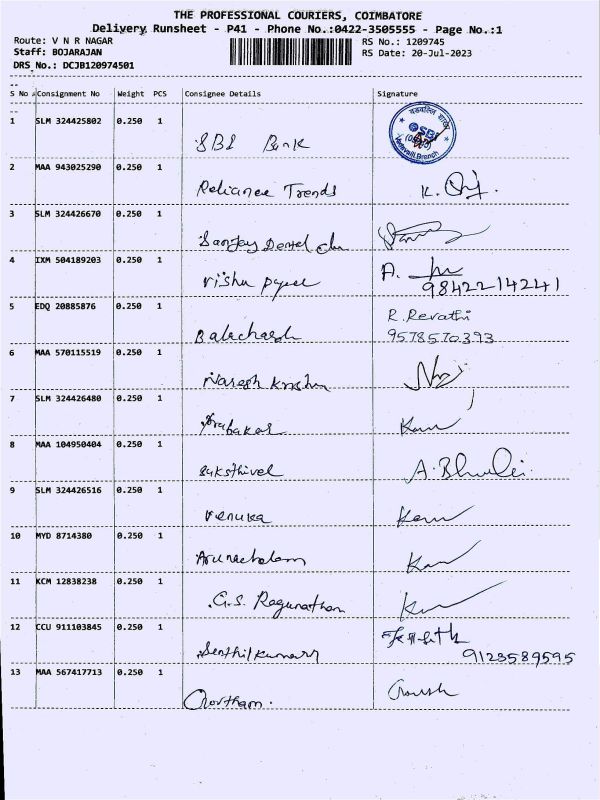 THE PROFESSIONAL COURIERS, COIMBATORE
Delivery Runsheet - P41 - Phone No.:0422-3505555 - Page No.:1
Route: V N R NAGAR
RS No.: 1209745
Staff: BOJARAJAN
RS Date: 20-Jul-2023
DRS No.: DCJB120974501
S No Consignment No Weight PCS Consignee Details Signature
1 SLM 324425802 0.250 1
SBI Bank SBI Vadavalli Branch
2 MAA 943025290 0.250 1
Reliance Trends K.
3 SLM 324426670 0.250 1
Sanjay Dental
4 IXM 504189203 0.250 1 A.
Vishu 98422142241
5 EDQ 20885876 0.250 1 R. Revathi
9578570393
6 MAA 570115519 0.250 1
Naresh Krishna
7 SLM 324426480 0.250 1
Prabakar
8 MAA 104950404 0.250 1
Sakthivel A.
9 SLM 324426516 0.250 1
Venuka
10 MYD 8714380 0.250 1
Arunachalam
11 KCM 12838238 0.250 1
G.S. Ragunathan
12 CCU 911103845 0.250 1
Senthilkumar 9123589595
13 MAA 567417713 0.250 1
Gowtham.